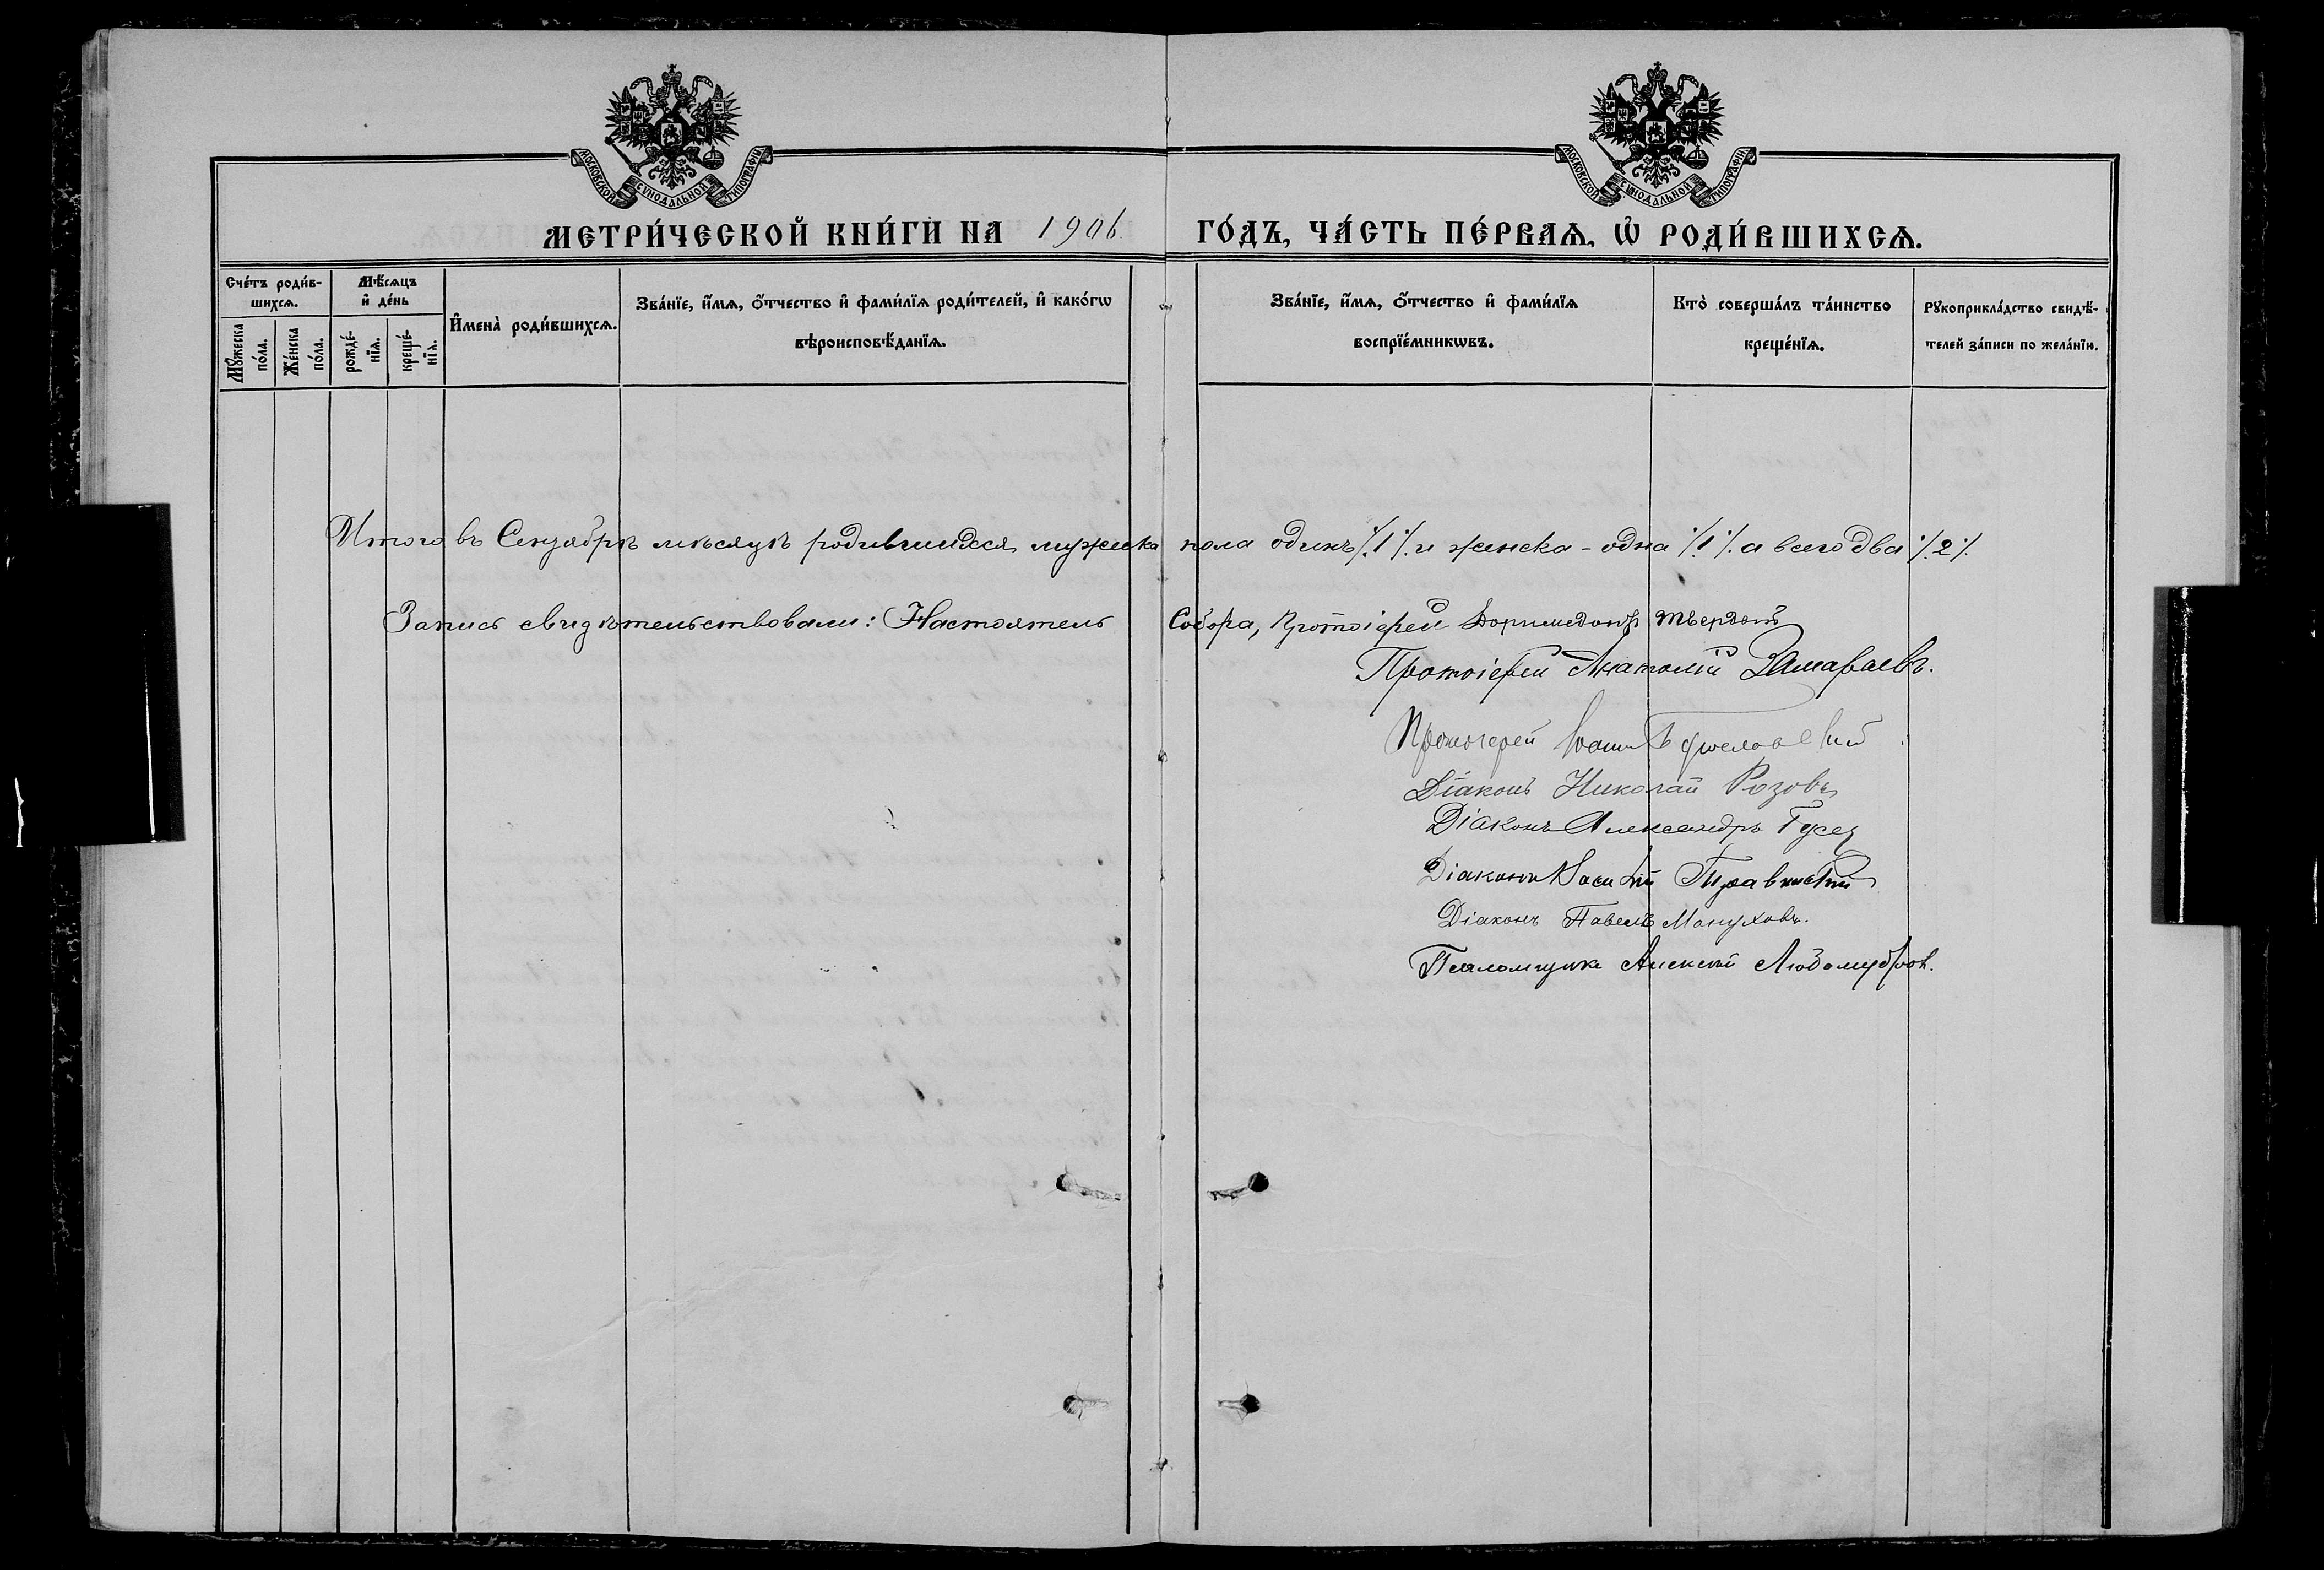 МОСКОВСКОЙ СѴНОДАЛЬНОЙ ТИПОГРАФІИ
МОСКОВСКОЙ СѴНОДАЛЬНОЙ ТИПОГРАФІИ
МЕТРИ́ЧЕСКОЙ КНИ́ГИ НА 1906 ГО́ДЪ, ЧА́СТЬ ПЕ́РВАѦ, Ѡ҆ РОДИ́ВШИХСѦ.
Сче́тъ роди́в-
шихсѧ.
Мꙋ́жеска
по́ла.
Же́нска
по́ла.
Мѣ́сѧцъ
и҆ де́нь
рожде́-
нїѧ.
креще́-
нїѧ.
И҆мена̀ роди́вшихсѧ.
Зва́нїе, и҆́мѧ, ѻ҆́тчество и҆ фами́лїѧ роди́телей, и҆ како́гѡ
вѣроисповѣ́данїѧ.
Зва́нїе, и҆́мѧ, ѻ҆́тчество и҆ фами́лїѧ
воспрїе́мникѡвъ.
Кто̀ соверша́лъ та́инство
креще́нїѧ.
Рꙋкоприкла́дство свидѣ́-
телей за́писи по жела́нїи.
Итого въ Сентябрѣ мѣсяцѣ родившихся мужеска пола одинъ ./.1./. и женска - одна ./.1./. а всего два ./.2./.
Запись свидѣтельствовали: Настоятель Собора, Протоіерей Доримедонтъ Твердой
Протоіерей Анатолій Замараевъ.
Протоіерей Іоаннъ
Діаконъ Николай Розовъ
Діаконъ Александръ Гусев
Діаконъ Василій Травинскій
Діаконъ Павелъ Мануховъ.
Псаломщикъ Алексѣй Любомудров.